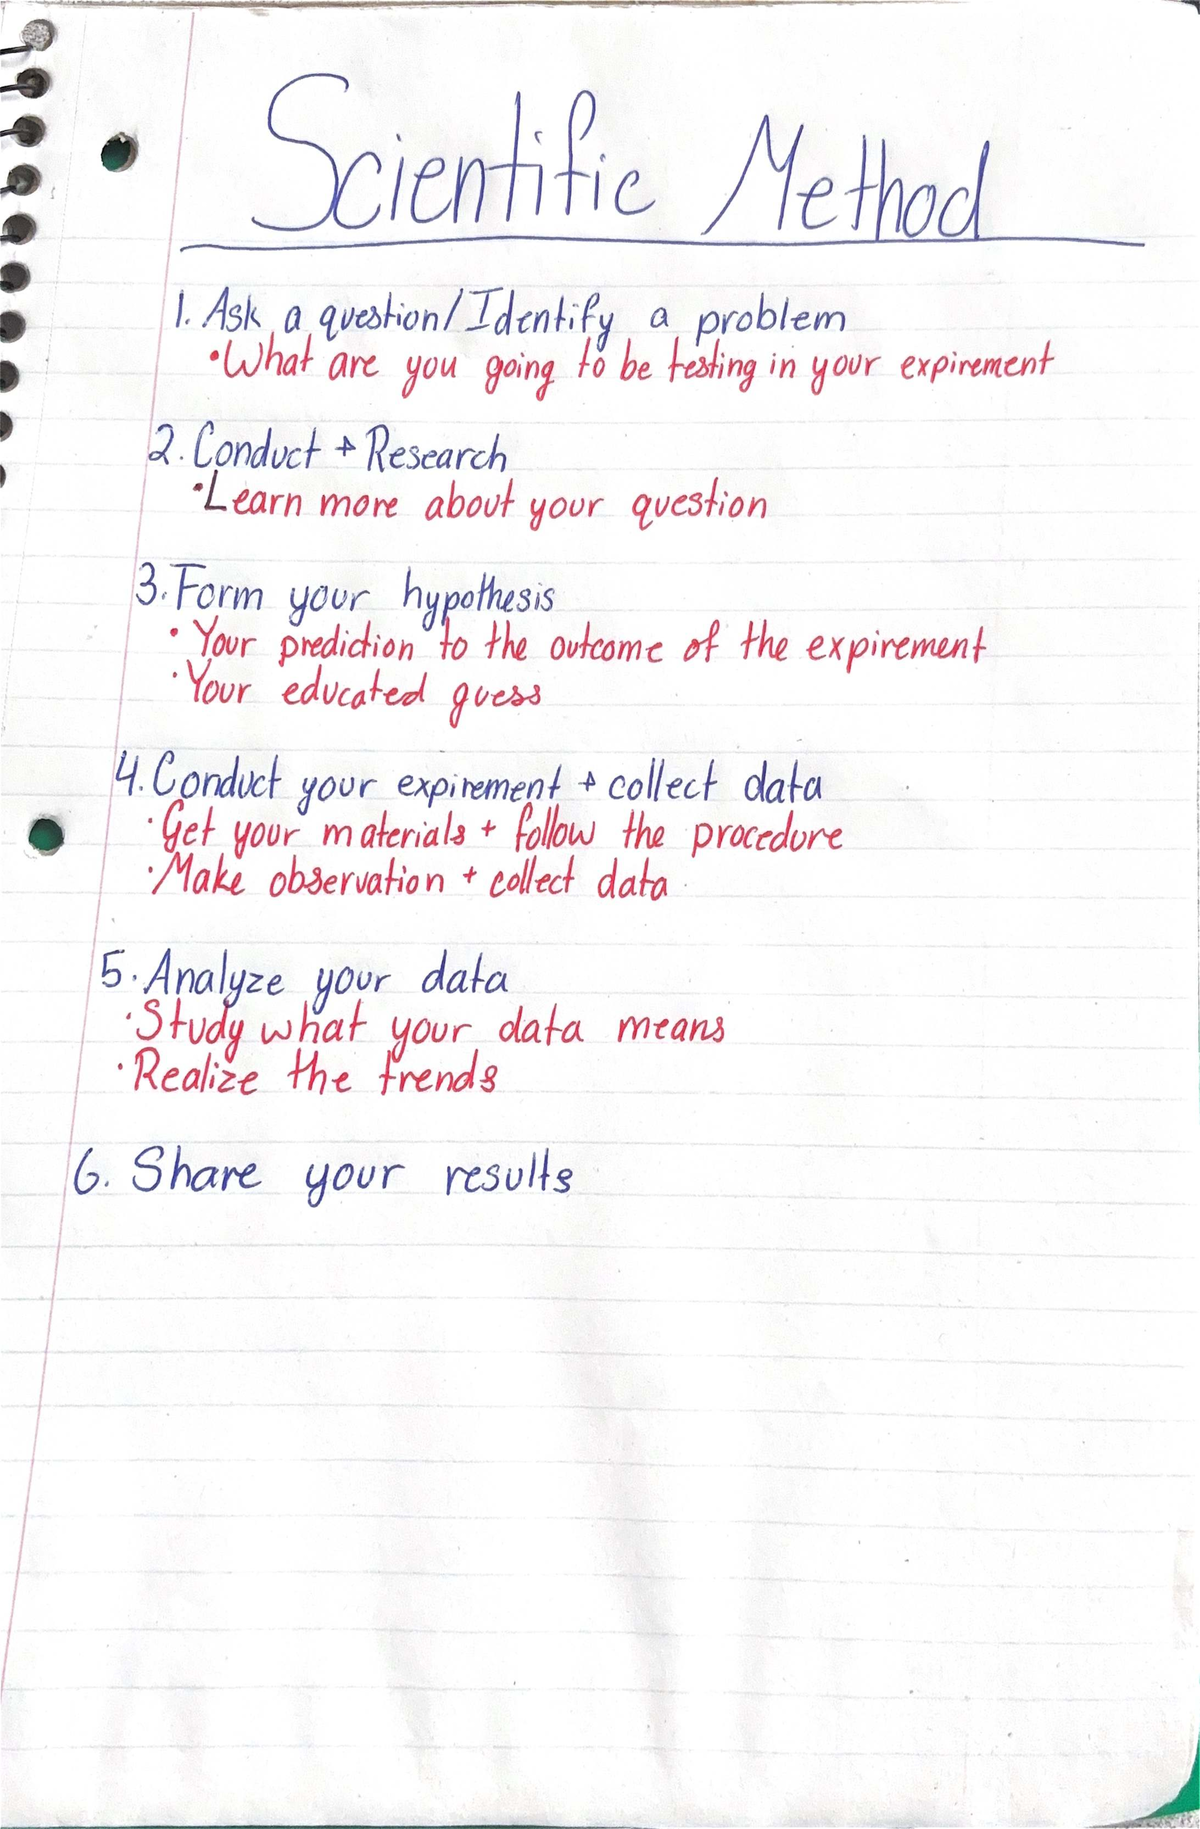 Scientific Method
1. Ask a question/Identify a problem
•What are you going to be testing in your expirement
2. Conduct + Research
•Learn more about your question
3. Form your hypothesis
• Your prediction to the outcome of the expirement
•Your educated guess
4. Conduct your expirement + collect data
•Get your materials + follow the procedure
•Make observation + collect data
5. Analyze your data
•Study what your data means
•Realize the trends
6. Share your results